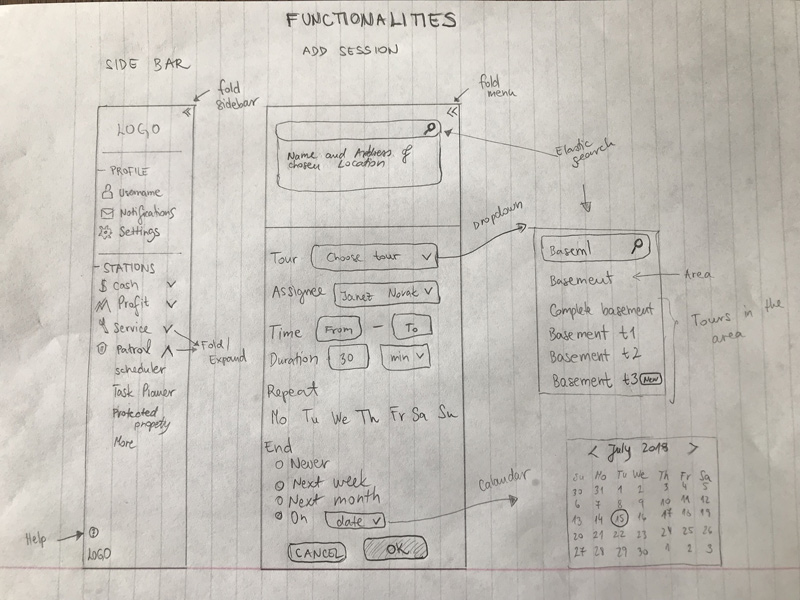 FUNCTIONALITIES
ADD SESSION
SIDE BAR
fold sidebar
LOGO
PROFILE
Username
Notifications
Settings
STATIONS
Cash
Profit
Service
Patrol
scheduler
Task Planer
Protected
propety
More
Fold/
Expand
Help
?
LOGO
fold
menu
Name and Address of
chosen Location
Elastic
search
Tour Choose tour
Assignee Janez Novak
Time From - To
Duration 30 min
Repeat
Mo Tu We Th Fr Sa Su
End
Never
Next week
Next month
On date
CANCEL OK
Dropdown
Baseml
Basement
Area
Complete basement
Basement t1
Basement t2
Basement t3 New
Tours in the
area
Calandar
< July 2018 >
Su Mo Tu We Th Fr Sa
30 31 1 2 3 4 5
6 7 8 9 10 11 12
13 14 15 16 17 18 19
20 21 22 23 24 25 26
27 28 29 30 1 2 3